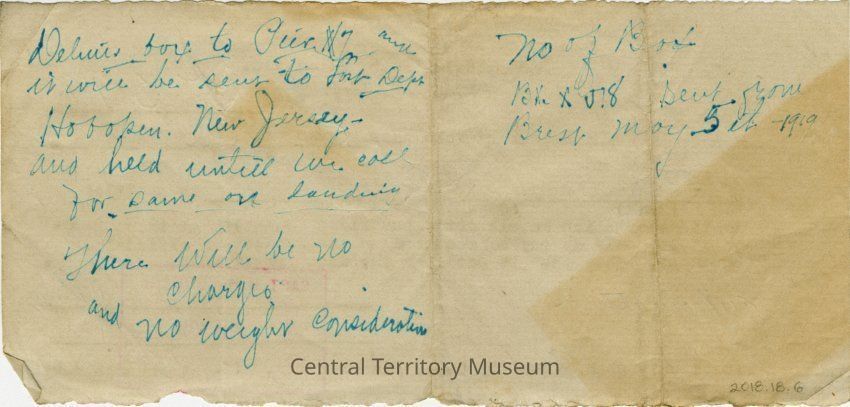 Deliver box to Pier #7 and
it will be sent to Port Dept
Hoboken. New Jersey-
and held untill we call
For same on landing
There Will be no
Charges
and no weight Consideration
No of Box
sent from
Brest May 5 1919
Central Territory Museum
2018.18.6